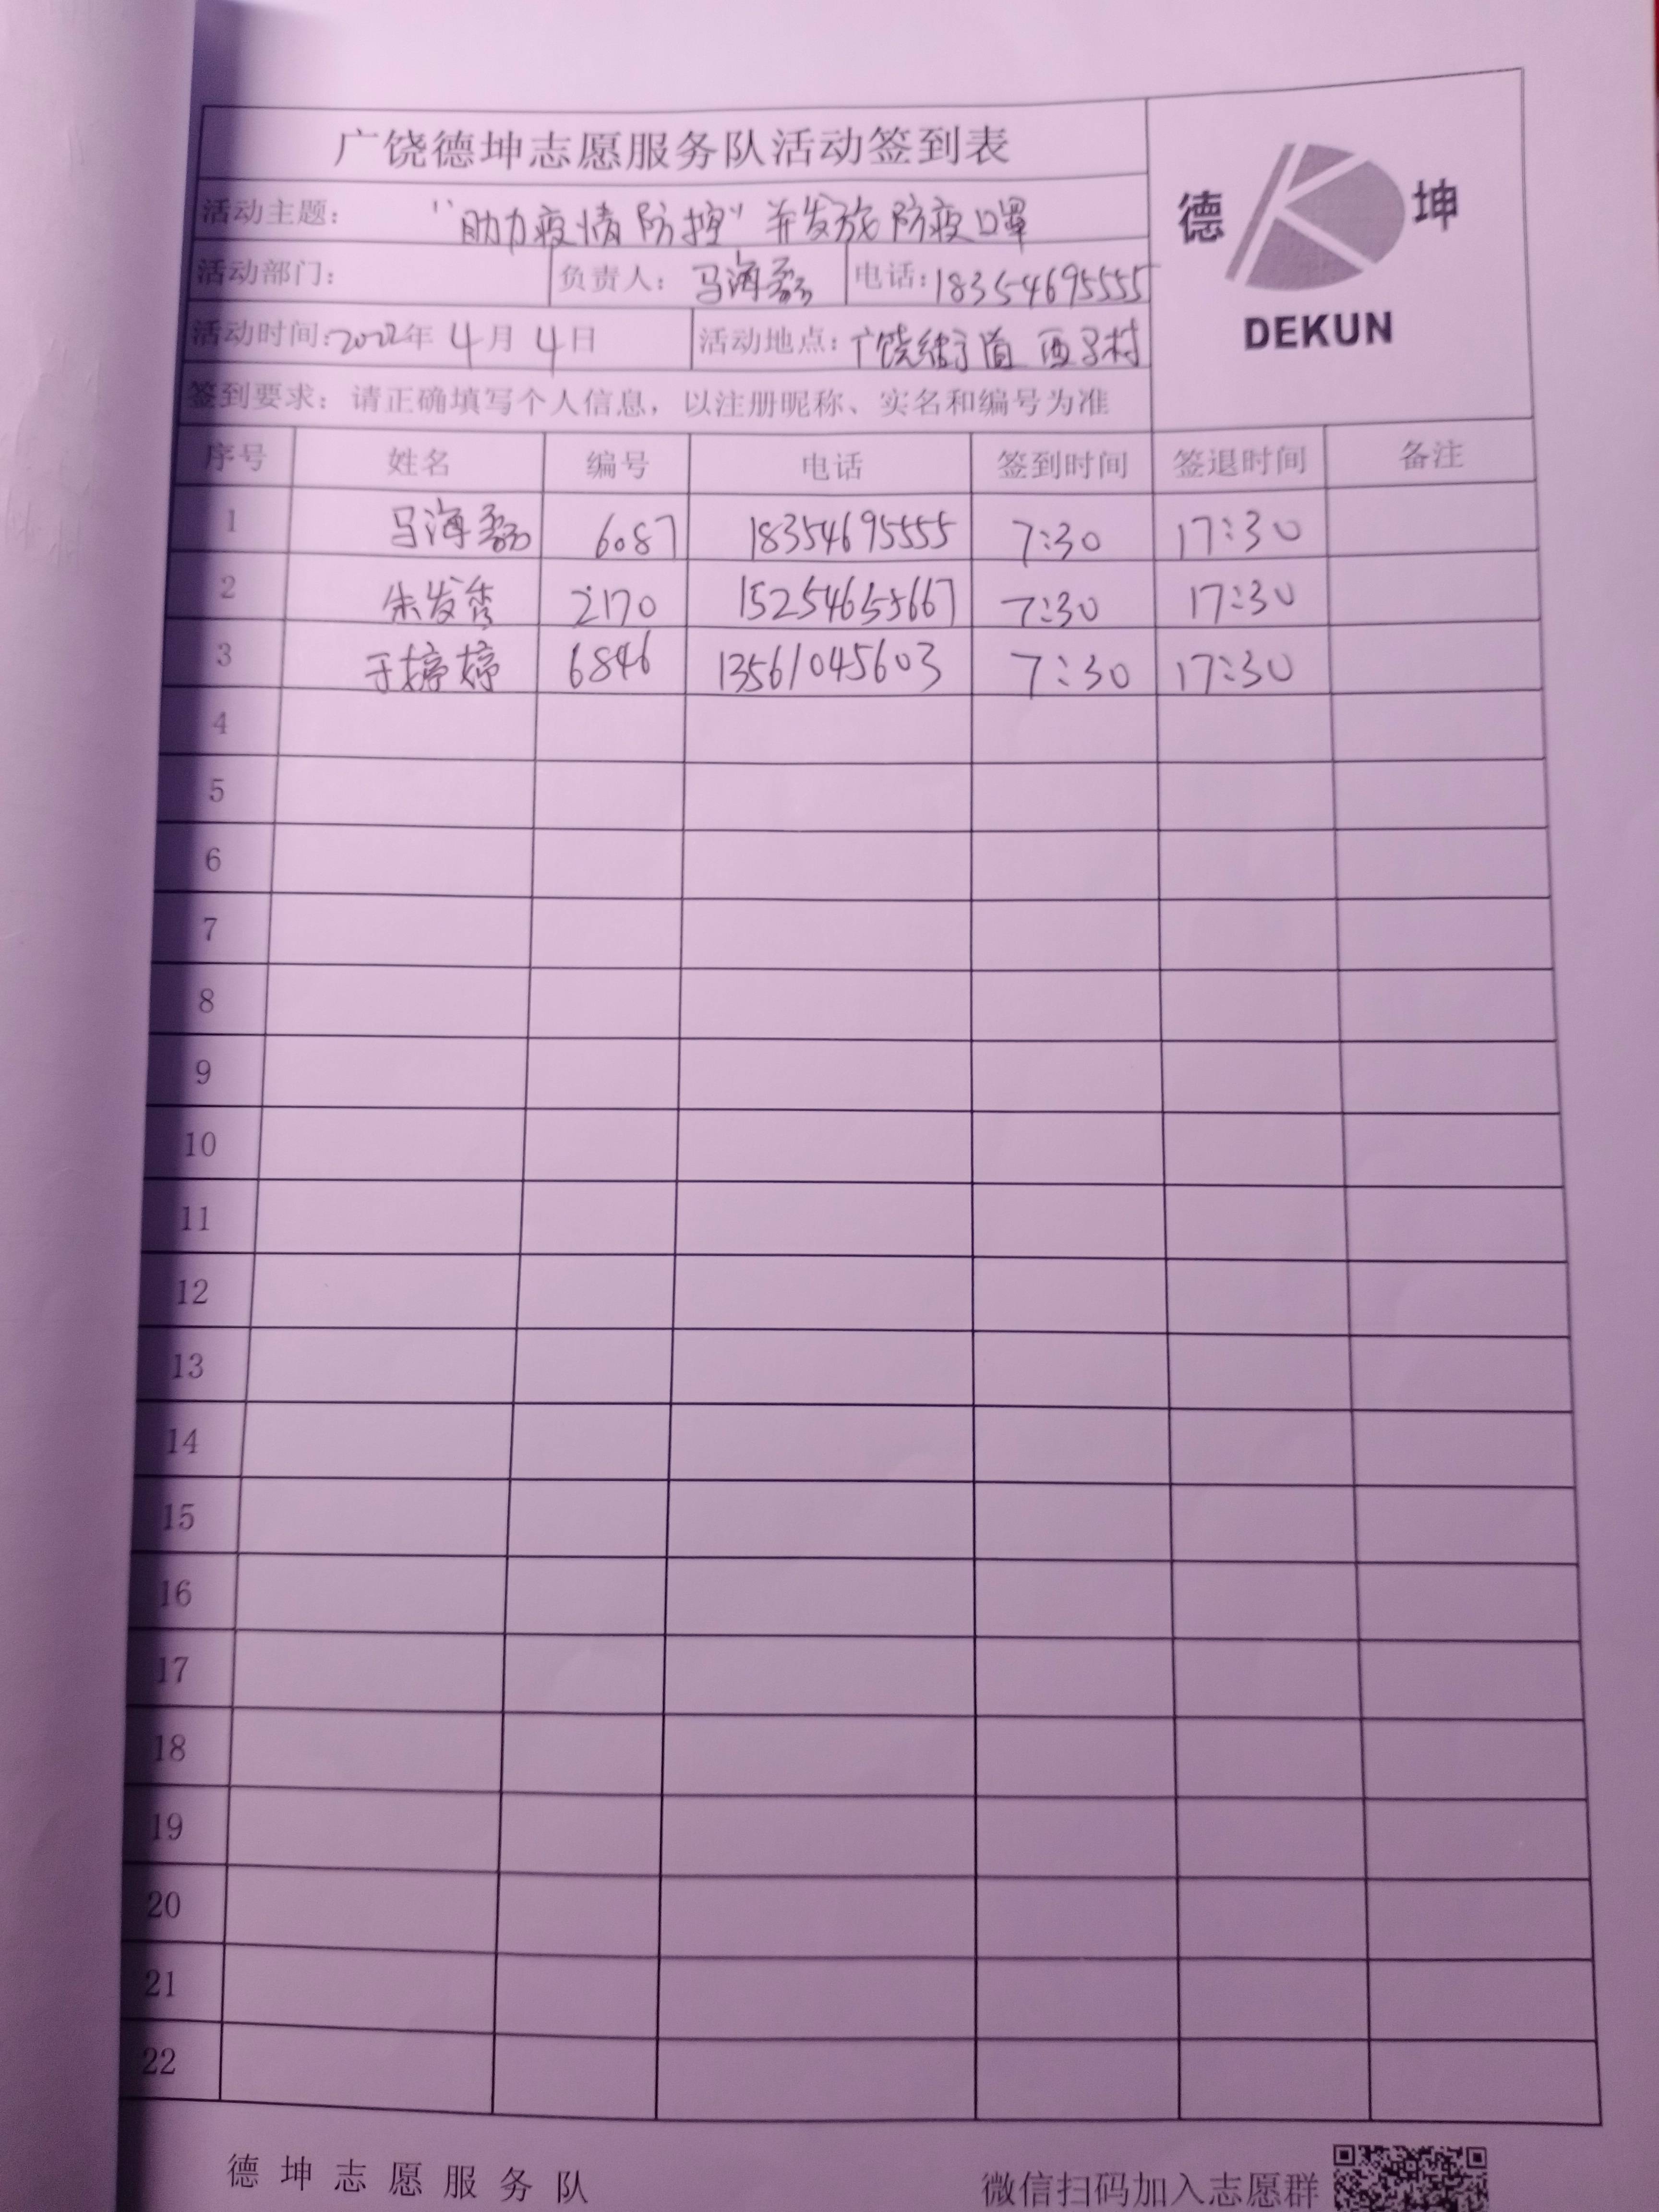 广饶德坤志愿服务队活动签到表
德 坤
DEKUN
活动主题： “助力疫情防控”并发放防疫口罩
活动部门： 负责人：马海磊 电话：18354695555
活动时间：2022年4月4日 活动地点：广饶街道 西 村
签到要求：请正确填写个人信息，以注册昵称、实名和编号为准
序号 姓名 编号 电话 签到时间 签退时间 备注
1 马海磊 6087 18354695555 7:30 17:30
2 朱发秀 2170 15254655667 7:30 17:30
3 于婷婷 6846 13561045603 7:30 17:30
4
5
6
7
8
9
10
11
12
13
14
15
16
17
18
19
20
21
22
德坤志愿服务队 微信扫码加入志愿群